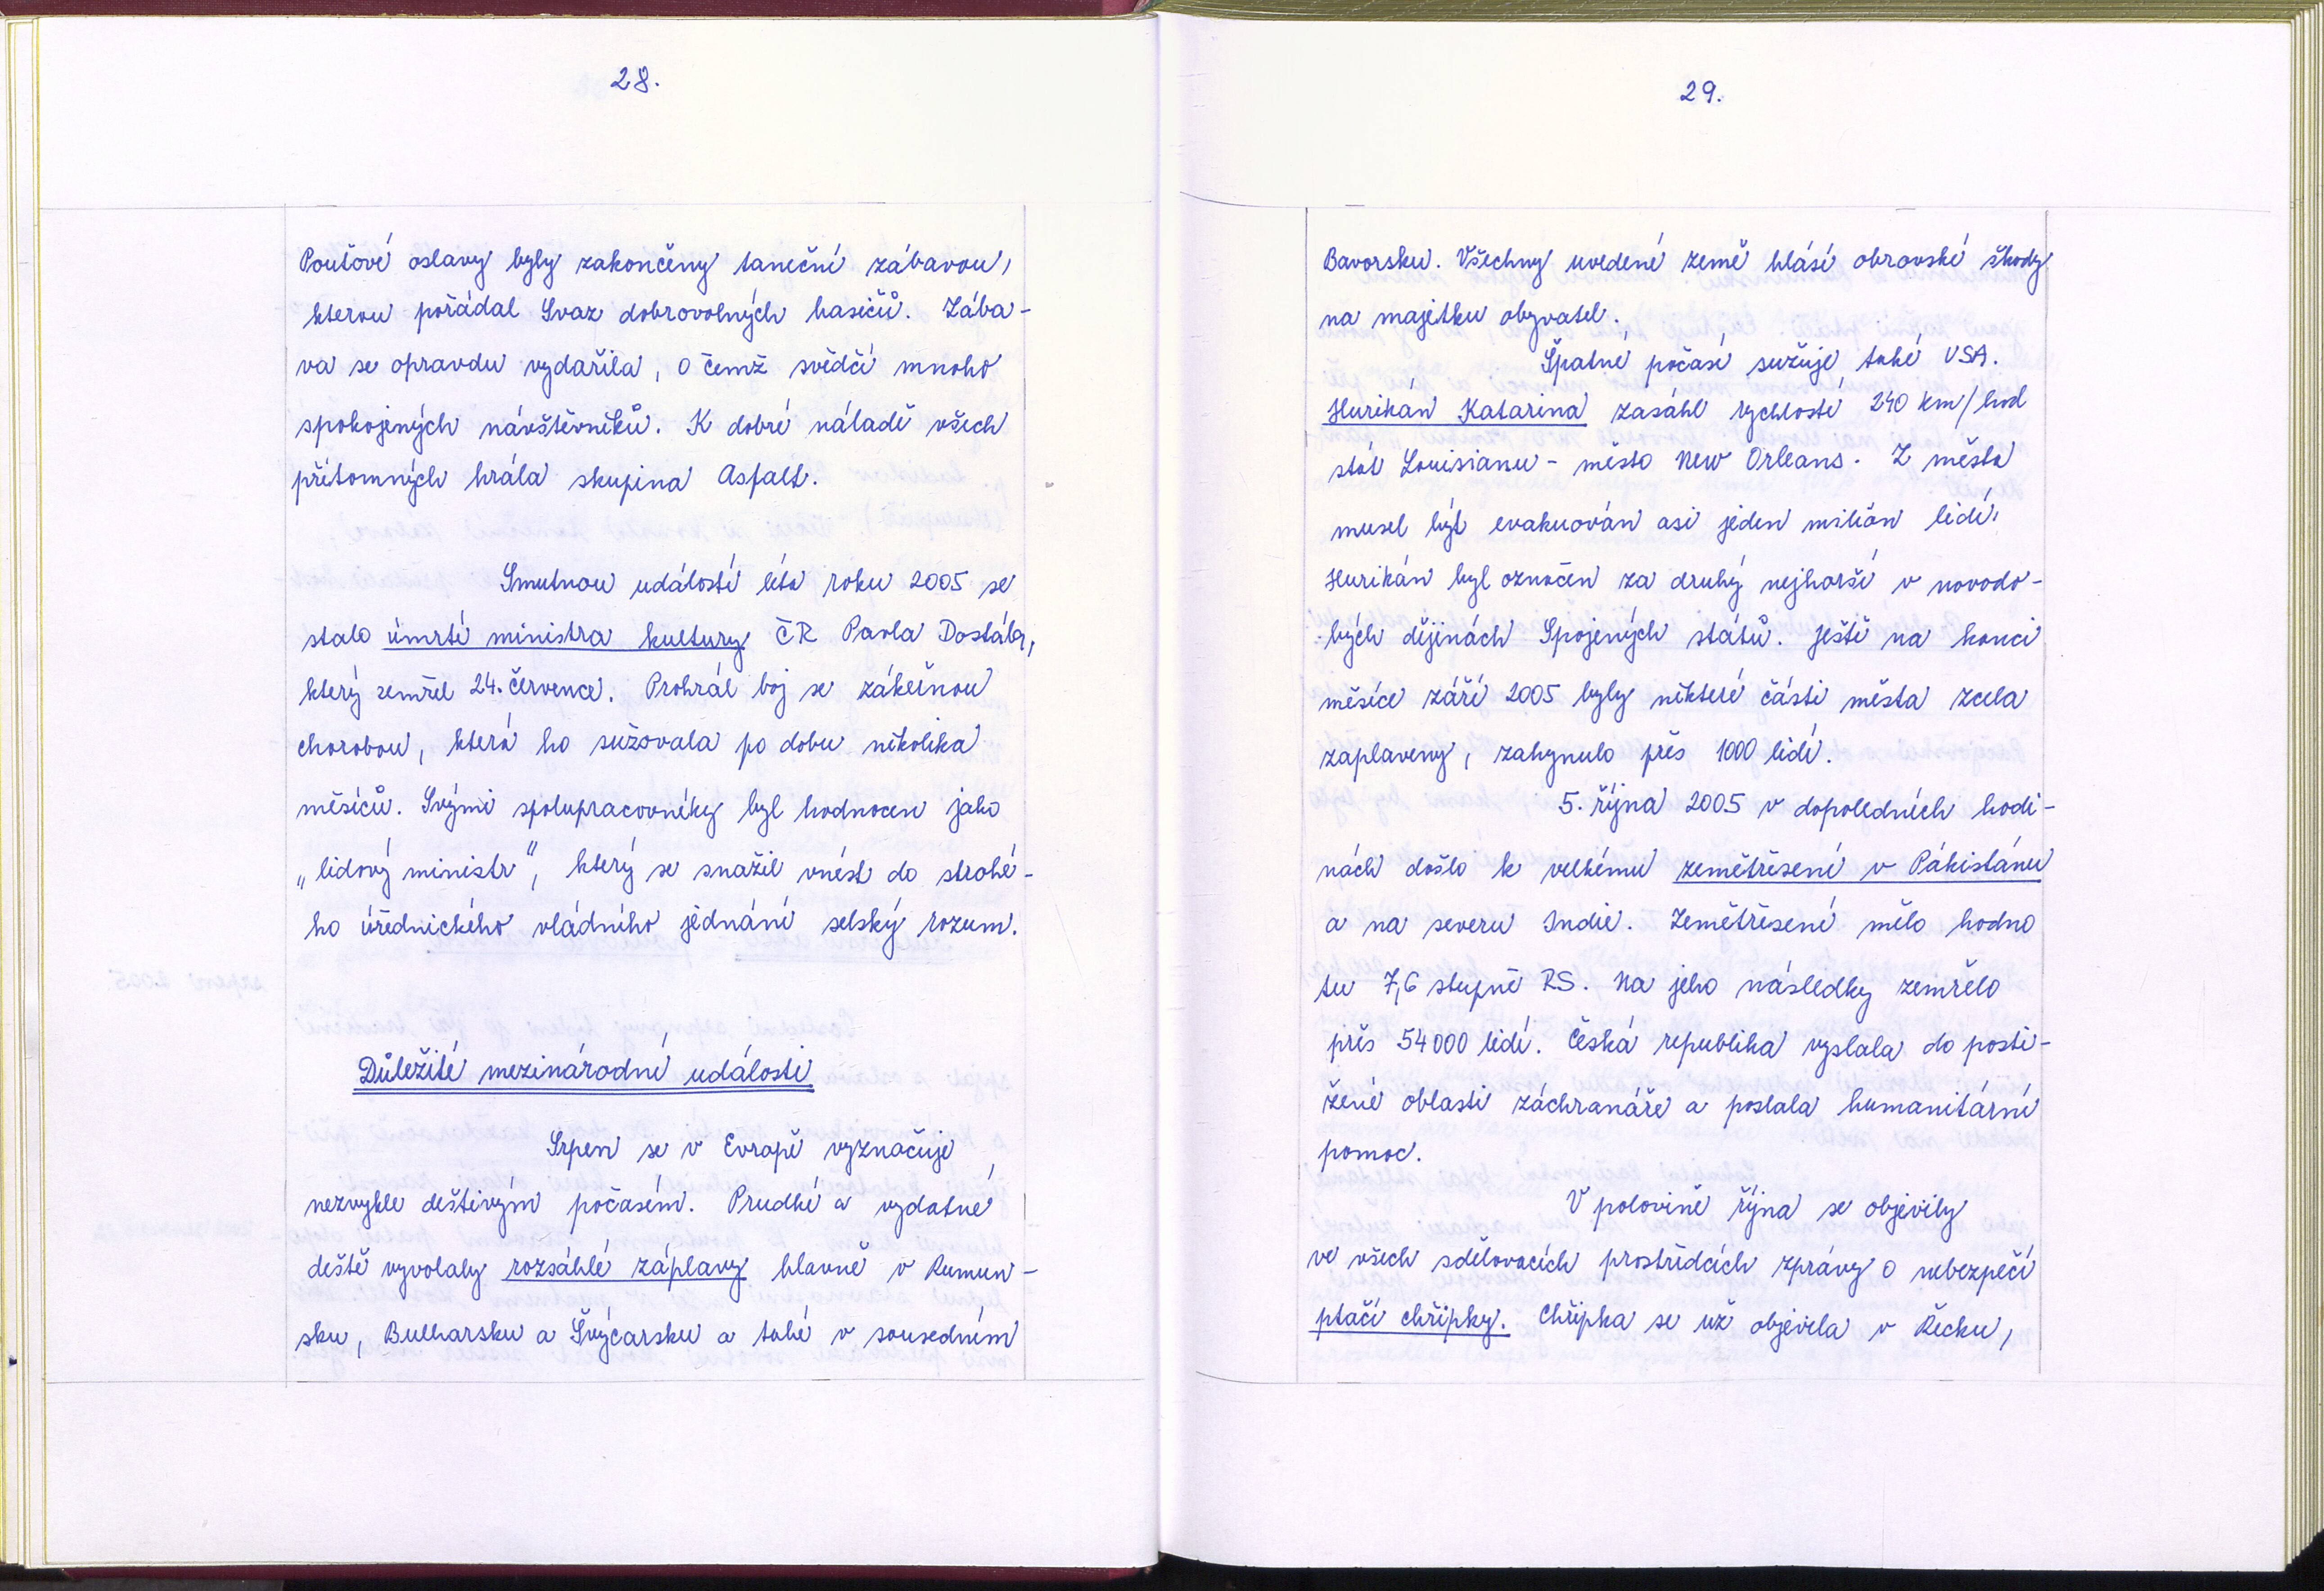 28.
Pouťové oslavy byly zakončeny taneční zábavou,
kterou pořádal Svaz dobrovolných hasičů. Zába-
va se opravdu vydařila, o čemž svědčí mnoho
spokojených návštěvníků. K dobré náladě všech
přítomných hrála skupina Asfalt.
Smutnou událostí léta roku 2005 se
stalo úmrtí ministra kultury ČR Pavla Dostála,
který zemřel 24. července. Prohrál boj se zákeřnou
chorobou, která ho sužovala po dobu několika
měsíců. Svými spolupracovníky byl hodnocen jako
„lidový ministr", který se snažil vnést do strohé-
ho úřednického vládního jednání selský rozum.
Důležité mezinárodní události
Srpen se v Evropě vyznačuje
nezvykle deštivým počasím. Prudké a vydatné
deště vyvolaly rozsáhlé záplavy hlavně v Rumun-
sku, Bulharsku a Švýcarsku a také v sousedním
29.
Bavorsku. Všechny uvedené země hlásí obrovské škody
na majetku obyvatel.
Špatné počasí sužuje také USA.
Hurikán Katarina zasáhl rychlostí 240 km/hod
stát Louisianu - město New Orleans. Z města
musel být evakuován asi jeden milión lidí.
Hurikán byl označen za druhý nejhorší v novodo-
bých dějinách Spojených států. Ještě na konci
měsíce září 2005 byly některé části města zcela
zaplaveny, zahynulo přes 1000 lidí.
5. října 2005 v dopoledních hodi-
nách došlo k velkému zemětřesení v Pákistánu
a na severu Indie. Zemětřesení mělo hodno
tu 7,6 stupně RS. Na jeho následky zemřelo
přes 54000 lidí. Česká republika vyslala do posti-
žené oblasti záchranáře a poslala humanitární
pomoc.
V polovině října se objevily
ve všech sdělovacích prostředcích zprávy o nebezpečí
ptačí chřipky. Chřipka se už objevila v Řecku,